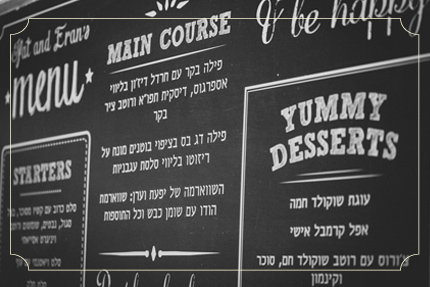 Yifat and Eran's
menu
& be happy
STARTERS
MAIN COURSE
פילה בקר עם חרדל דיז'ון בליווי
אספרגוס, דיסקית תפו"א ורוטב ציר
בקר
פילה דג בס בציפוי בוטנים מונח על
ריזוטו בליווי סלסת עגבניות
השווארמה של יפעת וערן: שווארמת
הודו עם שומן כבש וכל התוספות
YUMMY
DESSERTS
עוגת שוקולד חמה
אפל קרמבל אישי
צ'ורוס עם רוטב שוקולד חם, סוכר
וקינמון